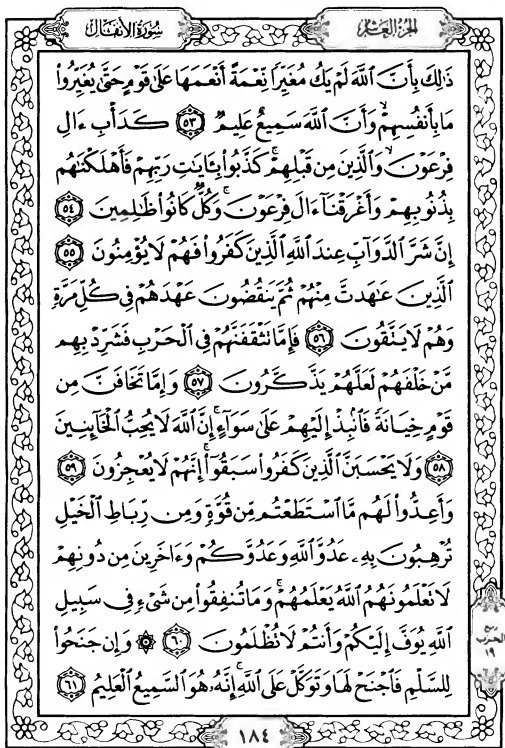 الجزء العاشر
سورة الأنفال
ذَٰلِكَ بِأَنَّ ٱللَّهَ لَمْ يَكُ مُغَيِّرًا نِّعْمَةً أَنْعَمَهَا عَلَىٰ قَوْمٍ حَتَّىٰ يُغَيِّرُوا۟
مَا بِأَنفُسِهِمْ ۙ وَأَنَّ ٱللَّهَ سَمِيعٌ عَلِيمٌ ٥٣ كَدَأْبِ ءَالِ
فِرْعَوْنَ ۙ وَٱلَّذِينَ مِن قَبْلِهِمْ ۚ كَذَّبُوا۟ بِـَٔايَٰتِ رَبِّهِمْ فَأَهْلَكْنَٰهُم
بِذُنُوبِهِمْ وَأَغْرَقْنَآ ءَالَ فِرْعَوْنَ ۚ وَكُلٌّ كَانُوا۟ ظَٰلِمِينَ ٥٤
إِنَّ شَرَّ ٱلدَّوَآبِّ عِندَ ٱللَّهِ ٱلَّذِينَ كَفَرُوا۟ فَهُمْ لَا يُؤْمِنُونَ ٥٥
ٱلَّذِينَ عَٰهَدتَّ مِنْهُمْ ثُمَّ يَنقُضُونَ عَهْدَهُمْ فِى كُلِّ مَرَّةٍ
وَهُمْ لَا يَتَّقُونَ ٥٦ فَإِمَّا تَثْقَفَنَّهُمْ فِى ٱلْحَرْبِ فَشَرِّدْ بِهِم
مَّنْ خَلْفَهُمْ لَعَلَّهُمْ يَذَّكَّرُونَ ٥٧ وَإِمَّا تَخَافَنَّ مِن
قَوْمٍ خِيَانَةً فَٱنۢبِذْ إِلَيْهِمْ عَلَىٰ سَوَآءٍ ۚ إِنَّ ٱللَّهَ لَا يُحِبُّ ٱلْخَآئِنِينَ
٥٨ وَلَا يَحْسَبَنَّ ٱلَّذِينَ كَفَرُوا۟ سَبَقُوٓا۟ ۚ إِنَّهُمْ لَا يُعْجِزُونَ ٥٩
وَأَعِدُّوا۟ لَهُم مَّا ٱسْتَطَعْتُم مِّن قُوَّةٍ وَمِن رِّبَاطِ ٱلْخَيْلِ
تُرْهِبُونَ بِهِۦ عَدُوَّ ٱللَّهِ وَعَدُوَّكُمْ وَءَاخَرِينَ مِن دُونِهِمْ
لَا تَعْلَمُونَهُمُ ٱللَّهُ يَعْلَمُهُمْ ۚ وَمَا تُنفِقُوا۟ مِن شَىْءٍ فِى سَبِيلِ
ٱللَّهِ يُوَفَّ إِلَيْكُمْ وَأَنتُمْ لَا تُظْلَمُونَ ٦٠ ۞ وَإِن جَنَحُوا۟
لِلسَّلْمِ فَٱجْنَحْ لَهَا وَتَوَكَّلْ عَلَى ٱللَّهِ ۚ إِنَّهُۥ هُوَ ٱلسَّمِيعُ ٱلْعَلِيمُ ٦١
ربع
الحزب
١٩
١٨٤